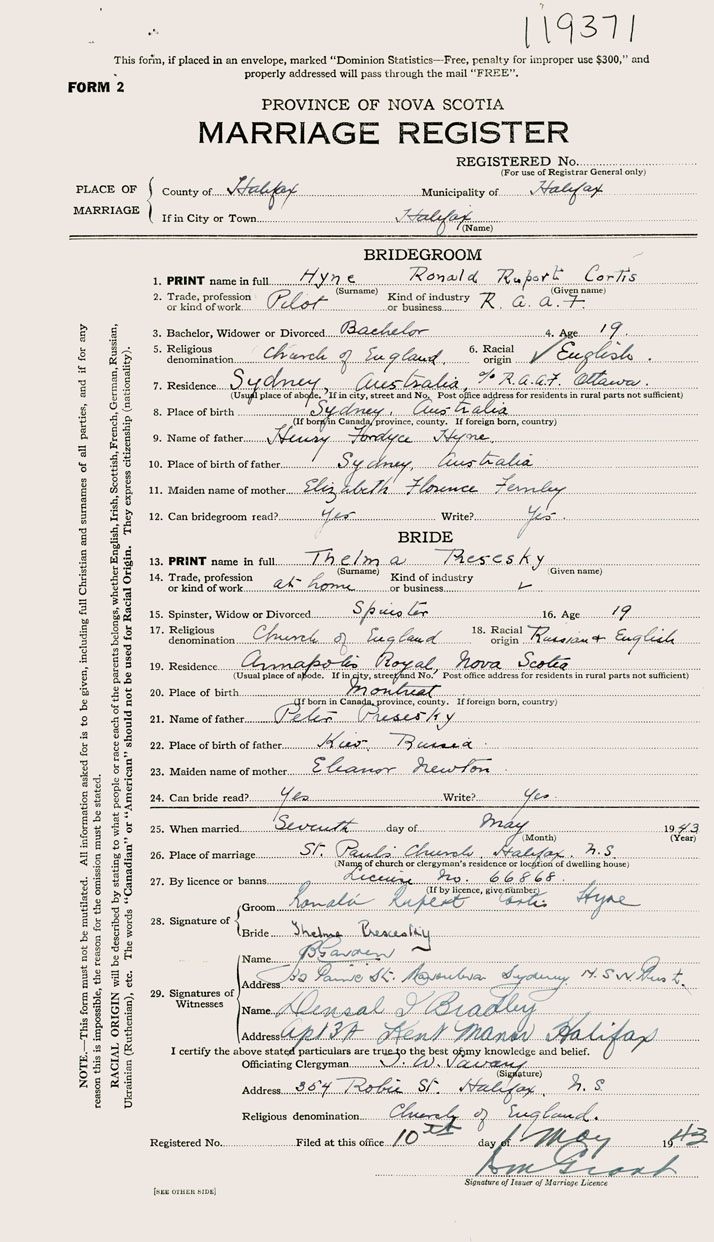 119371
This form, if placed in an envelope, marked "Dominion Statistics—Free, penalty for improper use $300," and
properly addressed will pass through the mail "FREE".
FORM 2
PROVINCE OF NOVA SCOTIA
MARRIAGE REGISTER
REGISTERED No.
(For use of Registrar General only)
PLACE OF MARRIAGE
County of Halifax Municipality of Halifax
If in City or Town Halifax
(Name)
BRIDEGROOM
1. PRINT name in full Hyne Ronald Ruport Cortis
(Surname) (Given name)
2. Trade, profession or kind of work Pilot Kind of industry or business R.A.A.F.
3. Bachelor, Widower or Divorced Bachelor 4. Age 19.
5. Religious denomination Church of England. 6. Racial origin ✓ English.
7. Residence Sydney, Australia, c/o R.A.A.F. Ottawa.
(Usual place of abode. If in city, street and No. Post office address for residents in rural parts not sufficient)
8. Place of birth Sydney. Australia
(If born in Canada, province, county. If foreign born, country)
9. Name of father Henry Fordyce Hyne.
10. Place of birth of father Sydney, Australia
11. Maiden name of mother Elizabeth Florence Fernley
12. Can bridegroom read? Yes Write? Yes.
BRIDE
13. PRINT name in full Thelma Presesky
(Surname) (Given name)
14. Trade, profession or kind of work at home Kind of industry or business ✓
15. Spinster, Widow or Divorced Spinster 16. Age 19
17. Religious denomination Church of England 18. Racial origin Russian & English
19. Residence Annapolis Royal, Nova Scotia
(Usual place of abode. If in city, street and No. Post office address for residents in rural parts not sufficient)
20. Place of birth Montreal
(If born in Canada, province, county. If foreign born, country)
21. Name of father Peter Presesky
22. Place of birth of father Kiev, Russia
23. Maiden name of mother Eleanor Newton
24. Can bride read? Yes Write? Yes.
25. When married Seventh day of May 1943
(Month) (Year)
26. Place of marriage St. Paul's Church, Halifax. N.S.
(Name of church or clergyman's residence or location of dwelling house)
27. By licence or banns License No. 66868.
(If by licence, give number)
28. Signature of
Groom Ronald Rupert Cortis Hyne
Bride Thelma Presesky
29. Signatures of Witnesses
Name
Address St. Sydney N.S.W. Aust.
Name Densal Bradley
Address Apt 3A Kent Manor Halifax
I certify the above stated particulars are true to the best of my knowledge and belief.
Officiating Clergyman T. W. Savary
(Signature)
Address 354 Robie St. Halifax, N.S.
Religious denomination Church of England.
Registered No. Filed at this office 10th day of May 1943
Grant
Signature of Issuer of Marriage Licence
[SEE OTHER SIDE]
NOTE.—This form must not be mutilated. All information asked for is to be given, including full Christian and surnames of all parties, and if for any
reason this is impossible, the reason for the omission must be stated.
RACIAL ORIGIN will be described by stating to what people or race each of the parents belongs, whether English, Irish, Scottish, French, German, Russian,
Ukrainian (Ruthenian), etc. The words "Canadian" or "American" should not be used for Racial Origin. They express citizenship (nationality).